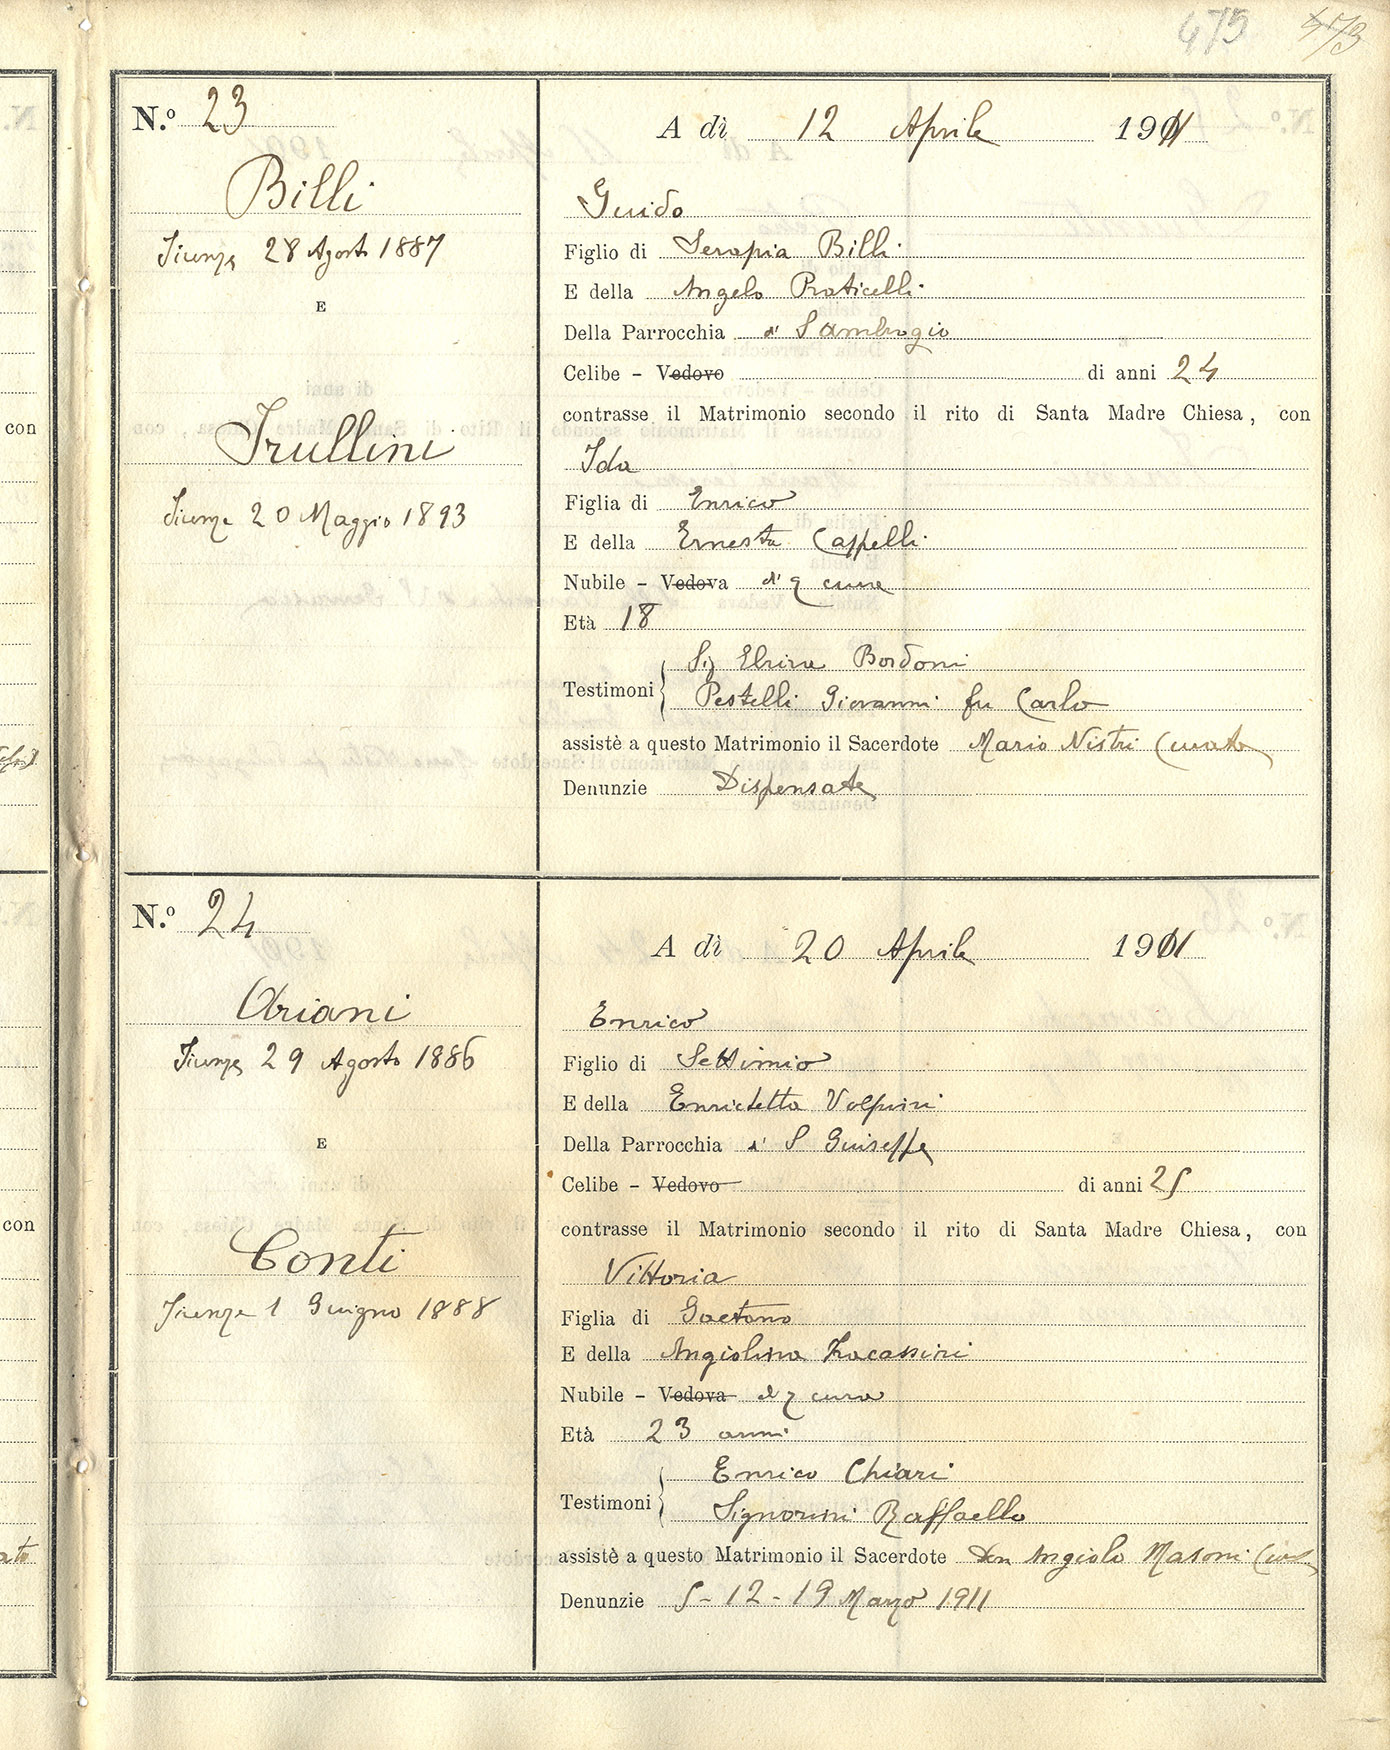 475 473
N.º 23
Billi
Firenze 28 Agosto 1887
E
Trullini
Firenze 20 Maggio 1893
A dì 12 Aprile 1911
Guido
Figlio di Serapia Billi
E della Angelo Praticelli
Della Parrocchia di S Ambrogio
Celibe - Vedovo di anni 24
contrasse il Matrimonio secondo il rito di Santa Madre Chiesa, con
Ida
Figlia di Enrico
E della Ernesta Cappelli
Nubile - Vedova di q cura
Età 18
Testimoni
Sig Elvira Bordoni
Pestelli Giovanni fu Carlo
assistè a questo Matrimonio il Sacerdote Mario Nistri Curato
Denunzie Dispensate
N.º 24
Oriani
Firenze 29 Agosto 1886
E
Conti
Firenze 1 Guigno 1888
A dì 20 Aprile 1911
Enrico
Figlio di Settimio
E della Enrichetta Volpini
Della Parrocchia di S Guiseppe
Celibe - Vedovo di anni 25
contrasse il Matrimonio secondo il rito di Santa Madre Chiesa, con
Vittoria
Figlia di Gaetano
E della Angiolina
Nubile - Vedova di q cura
Età 23 anni
Testimoni
Enrico Chiari
Signorini Raffaello
assistè a questo Matrimonio il Sacerdote Don Angiolo Masoni
Denunzie 5 - 12 - 19 Marzo 1911
con
con